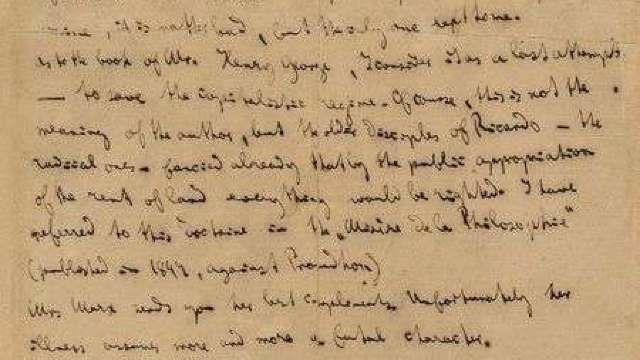 mine, it is not the bad, but the only one sept home.
As to the book of Mr. Henry George, I consider it as a last attempt
— to save the capitalistic regime. Of course, this is not the
meaning of the author, but the older disciples of Ricardo — the
radical ones — fancied already that by the public appropriation
of the rent of land everything would be righted. I have
referred to this doctrine in the „Misère de la Philosophie"
(published in 1847, against Proudhon)
Mrs Marx sends you her best compliments. Unfortunately her
illness assumes more and more a fatal character.